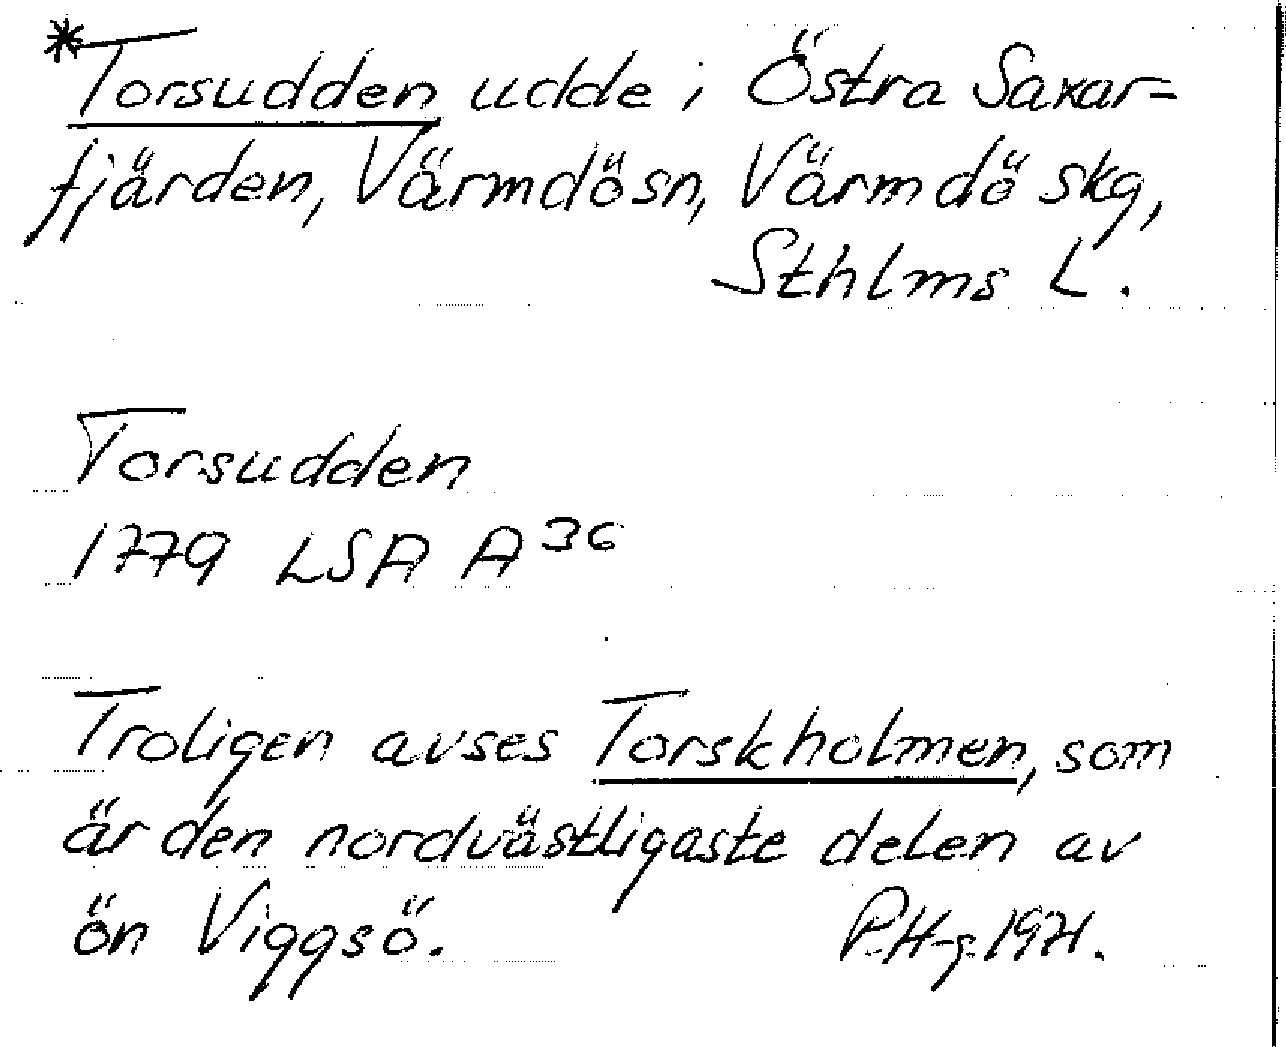 *Torsudden udde i Östra Saxar=
fjärden, Värmdö sn, Värmdö skg,
Sthlms L.
Torsudden
1779 LSA A 36
Troligen avses Torskholmen, som
är den nordvästligaste delen av
ön Viggsö. P.H-g. 1971.